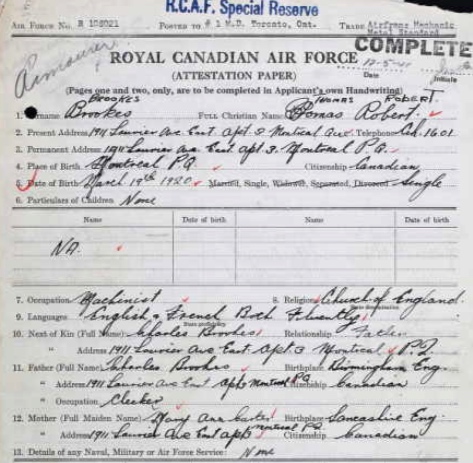 R.C.A.F. Special Reserve
AIR FORCE NO. R 106021 POSTED TO # 1 M.D. Toronto, Ont. TRADE Airframe Mechanic
Metal Standard
COMPLETE
ROYAL CANADIAN AIR FORCE 12-5-41
(ATTESTATION PAPER) Date Initials
(Pages one and two, only, are to be completed in Applicant's own Handwriting)
BROOKES THOMAS ROBERT.
1. Surname Brookes Full Christian Name Thomas Robert.
2. Present Address 1911 Laurier Ave East Apt. 3 Montreal Que Telephone Ch. 1601
3. Permanent Address 1911 Laurier Ave East Apt. 3. Montreal P.Q.
4. Place of Birth Montreal P.Q. Citizenship Canadian
5. Date of Birth March 19th 1920 Married, Single, Widower, Separated, Divorced Single
6. Particulars of Children None
Name Date of birth Name Date of birth
N.A.
7. Occupation Machinist 8. Religion Church of England
9. Languages English & French Both Fluently
State proficiency
10. Next of Kin (Full Name) Charles Brookes Relationship Father
" Address 1911 Laurier Ave East Apt. 3 Montreal P.Q.
11. Father (Full Name) Charles Brookes Birthplace Birmingham Eng.
" Address 1911 Laurier Ave East Apt 3 Montreal P.Q Citizenship Canadian
" Occupation Clerk
12. Mother (Full Maiden Name) Mary Ann Carter Birthplace Lancashire Eng
" Address 1911 Laurier Ave East Apt 3 Montreal P.Q. Citizenship Canadian
13. Details of any Naval, Military or Air Force Service: None